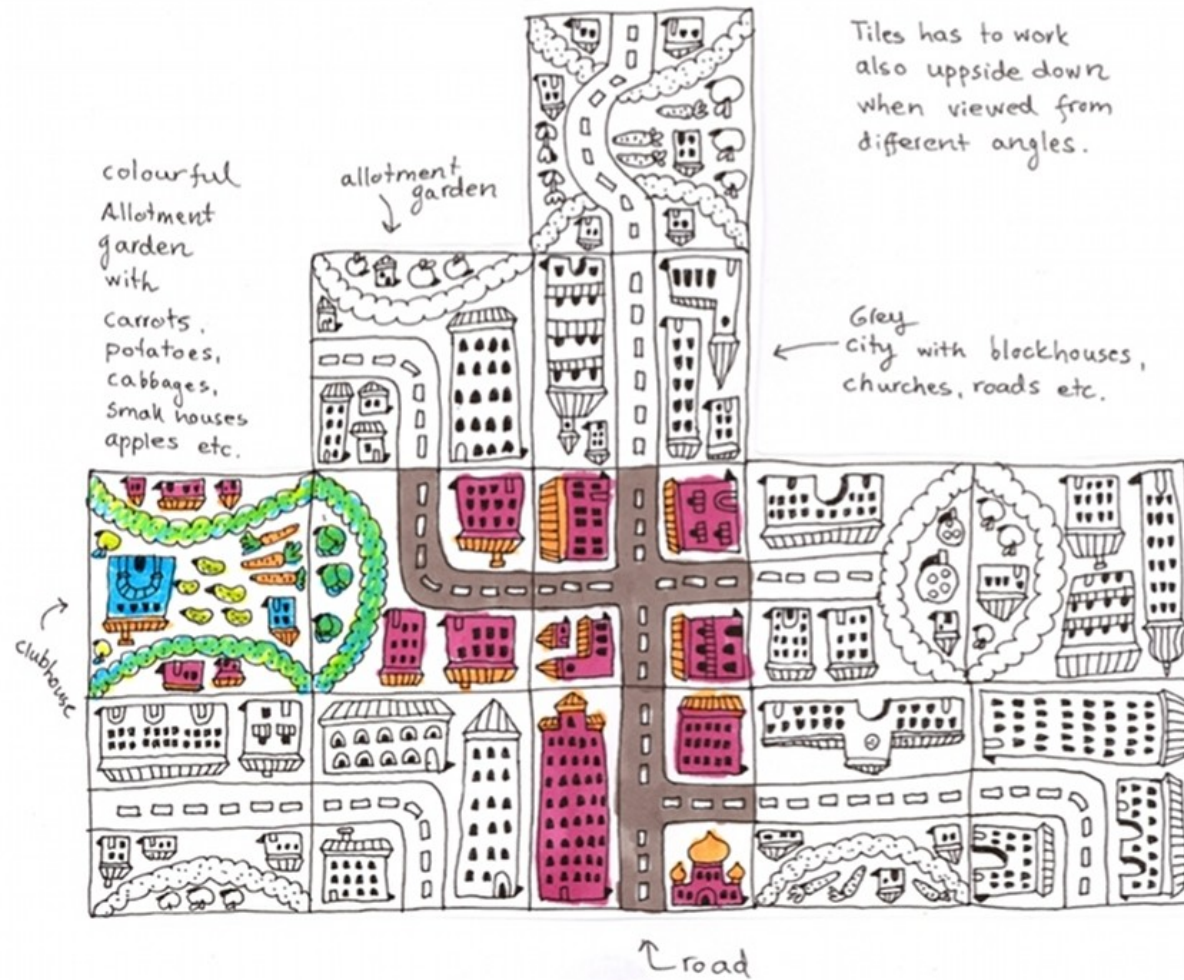 Tiles has to work
also uppside down
when viewed from
different angles.
colourful
Allotment
garden
with
carrots,
potatoes,
cabbages,
small houses
apples etc.
allotment
garden
Grey
City with blockhouses,
churches, roads etc.
clubhouse
road